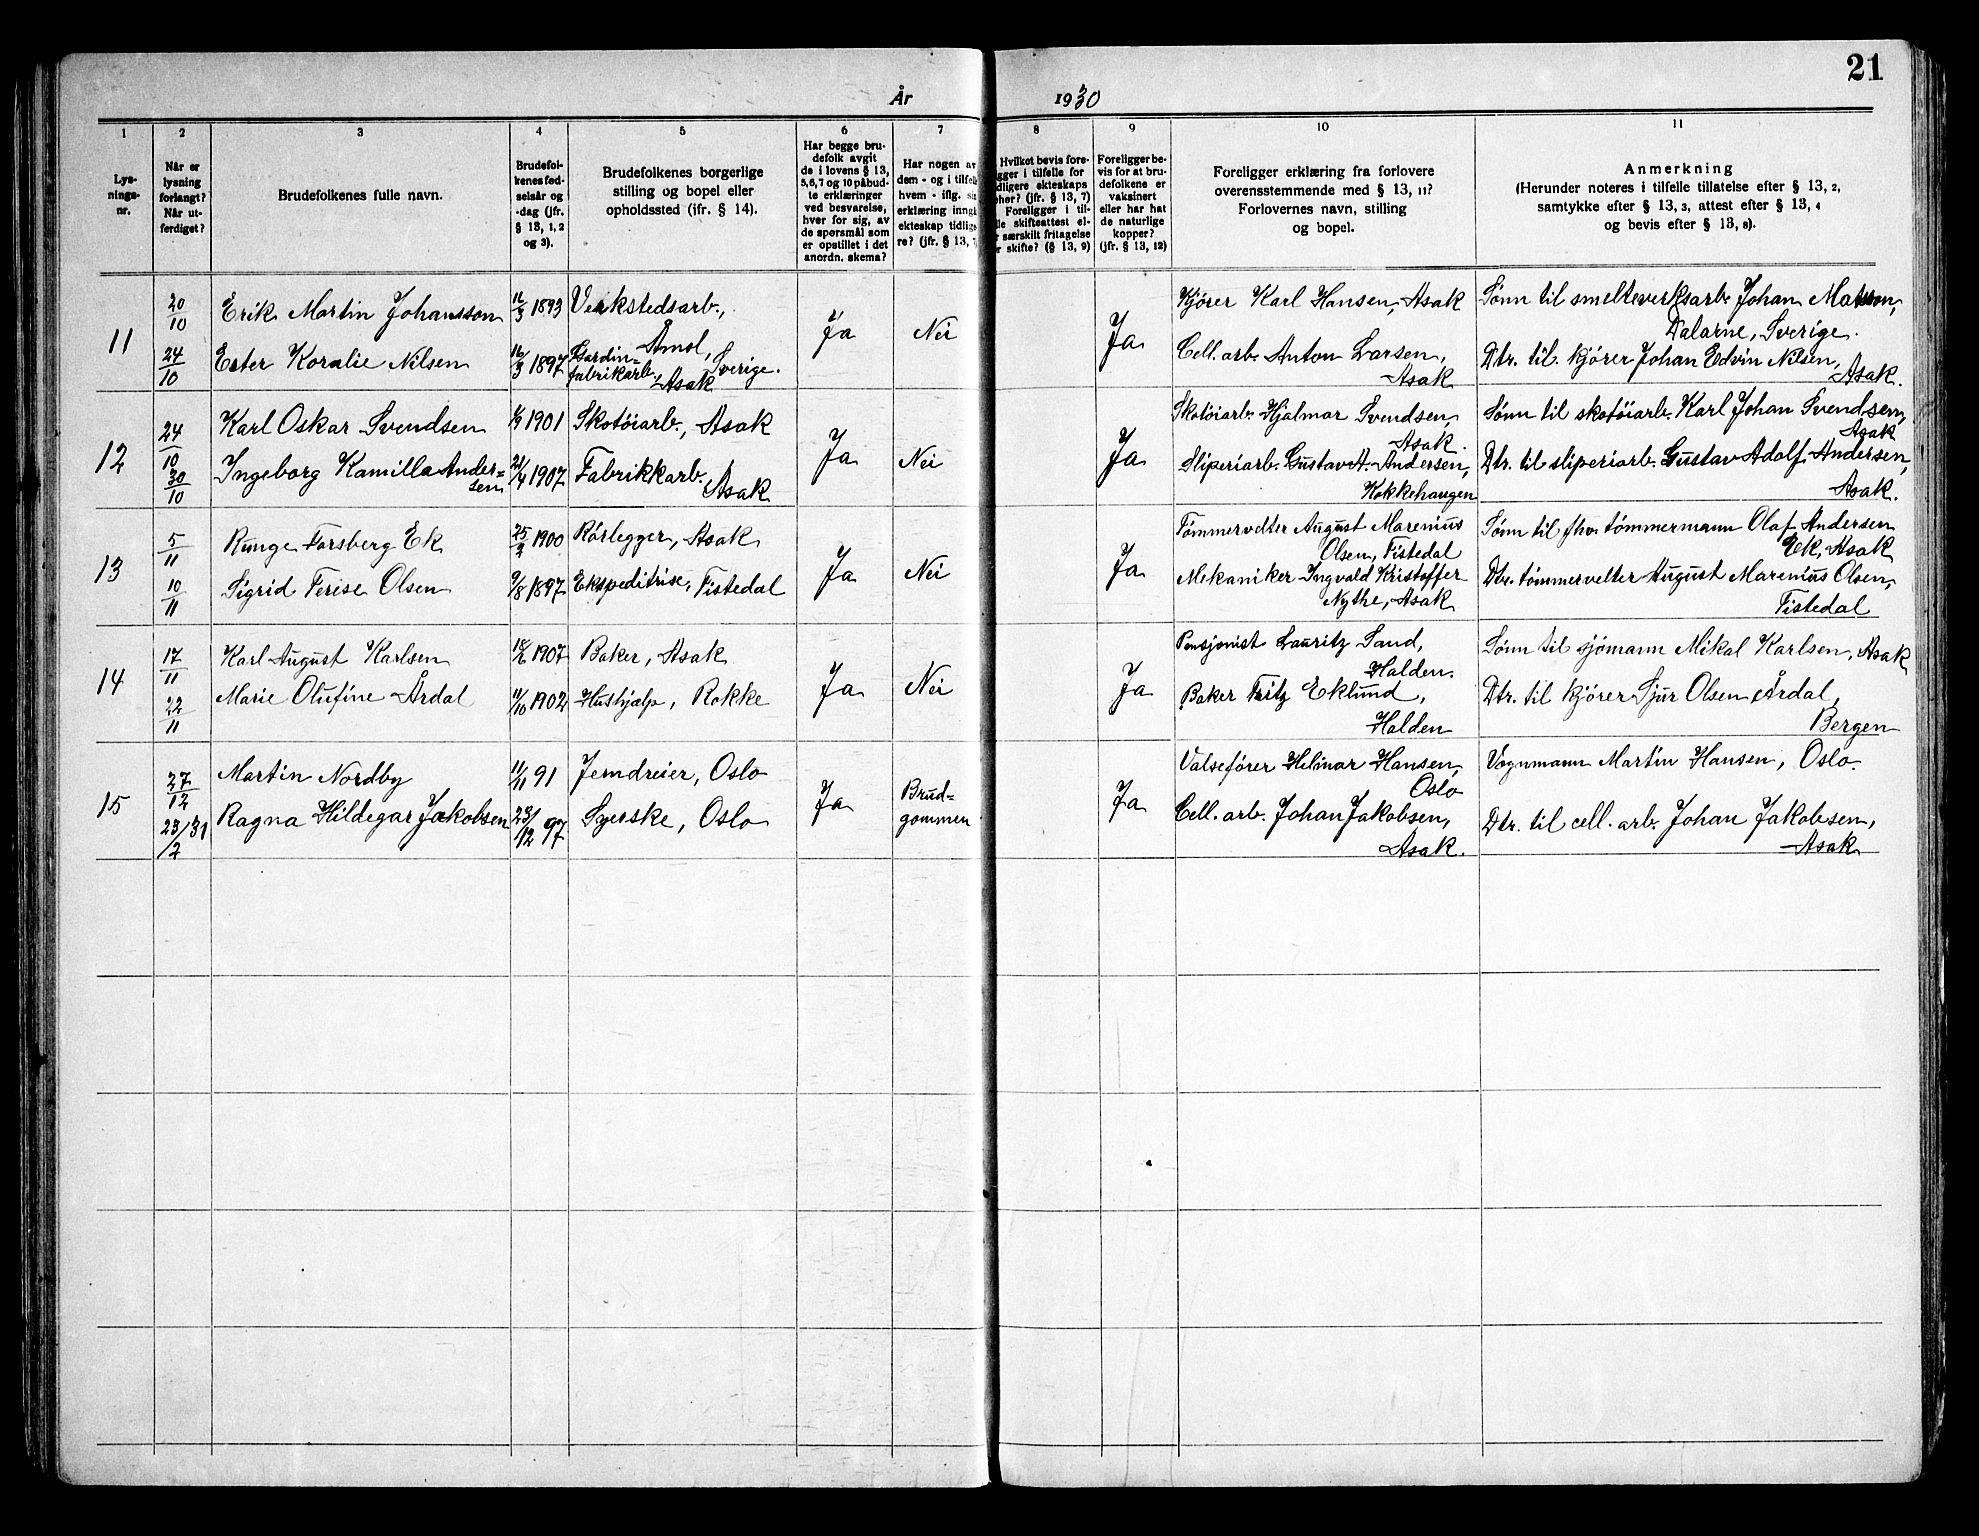 21
År 1930
1
2
3
4
5
6
7
8
9
10
11
Lys-
nings-
nr.
Når er
lysning
forlangt?
Når ut-
ferdiget?
Brudefolkenes fulle navn.
Brudefol-
kenes fød-
selsår og
-dag (jfr.
§ 13, 1, 2
og 3).
Brudefolkenes borgerlige
stilling og bopel eller
opholdssted (jfr. § 14).
Har begge bru-
defolk avgit
de i lovens § 13,
5, 6, 7 og 10 påbud-
te erklæringer
ved besvarelse,
hver for sig, av
de spørsmål som
er opstillet i det
anordn. skema?
Har nogen av
dem - og i tilfelle
hvem - iflg. sin
erklæring inngått
ekteskap tidlige-
re? (jfr. § 13, 7
Hvilket bevis fore-
gger i tilfelle for
dligere ekteskaps
pher? (jfr. § 13, 7)
Foreligger i til-
lle skifteattest el-
r særskilt fritagelse
r skifte? (§ 13, 9)
Foreligger be-
vis for at bru-
defolkene er
vaksinert
eller har hat
de naturlige
kopper?
(jfr. § 13, 12)
Foreligger erklæring fra forlovere
overensstemmende med § 13, 11?
Forlovernes navn, stilling
og bopel.
Anmerkning
(Herunder noteres i tilfelle tillatelse efter § 13, 2,
samtykke efter § 13, 3, attest efter § 13, 4
og bevis efter § 13, 8).
11
20/10
24/10
Erik Martin Johansson
Ester Koralie Nilsen
1893
16/3 1897
Verkstedsarb.,
Åmol,
Sverige.
Gardin-
fabrikarb.,
Asak
Ja
Nei
Ja
Kjører Karl Hansen, Asak
Cell. arb. Anton Larsen,
Asak
Sønn til smelteverksarb. Johan Matsson,
Dalarne, Sverige.
Dtr. til kjører Johan Edvin Nilsen,
Asak.
12
24/10
30/10
Karl Oskar Svendsen
Ingeborg Kamilla Ander-
sen
1901
21/4 1907
Skotøiarb., Asak
Fabrikkarb.,
Asak
Ja
Nei
Ja
Skotøiarb. Hjalmar Svendsen,
Asak.
Sliperiarb. Gustav A. Andersen,
Kokkehaugen
Sønn til skotøiarb. Karl Johan Svendsen,
Asak
Dtr. til sliperiarb. Gustav Adolf Andersen,
Asak.
13
5/11
10/11
Runge Forsberg Ek
Sigrid Terese Olsen
1900
9/8 1897
Rørlegger, Asak
Ekspeditrise, Tistedal
Ja
Nei
Ja
Tømmervelter August Marenius
Olsen, Tistedal
Mekaniker Ingvald Kristoffer
Nythe, Asak
Sønn til fhv. tømmermann Olaf Andersen
Ek, Asak
Dtr. tømmervelter August Marenius Olsen,
Tistedal
14
17/11
22/11
Karl August Karlsen
Marie Olufine Årdal
1907
11/10 1902
Baker, Asak
Hushjælp, Rokke
Ja
Nei
Ja
Pensjonist Lauritz Sand,
Halden.
Baker Fritz Eklund,
Halden
Sønn til sjømann Mikal Karlsen, Asak
Dtr. til kjører Sjur Olsen Årdal,
Bergen
15
27/12
23/2 31
Martin Nordby
Ragna Hildegar Jakobsen
11/11 91
23/12 97
Jerndreier, Oslo
Syerske, Oslo
Ja
Brud-
gommen
Ja
Valsefører Helmar Hansen,
Oslo
Cell. arb. Johan Jakobsen,
Asak.
Vognmann Martin Hansen, Oslo.
Dtr. til cell. arb. Johan Jakobsen,
Asak